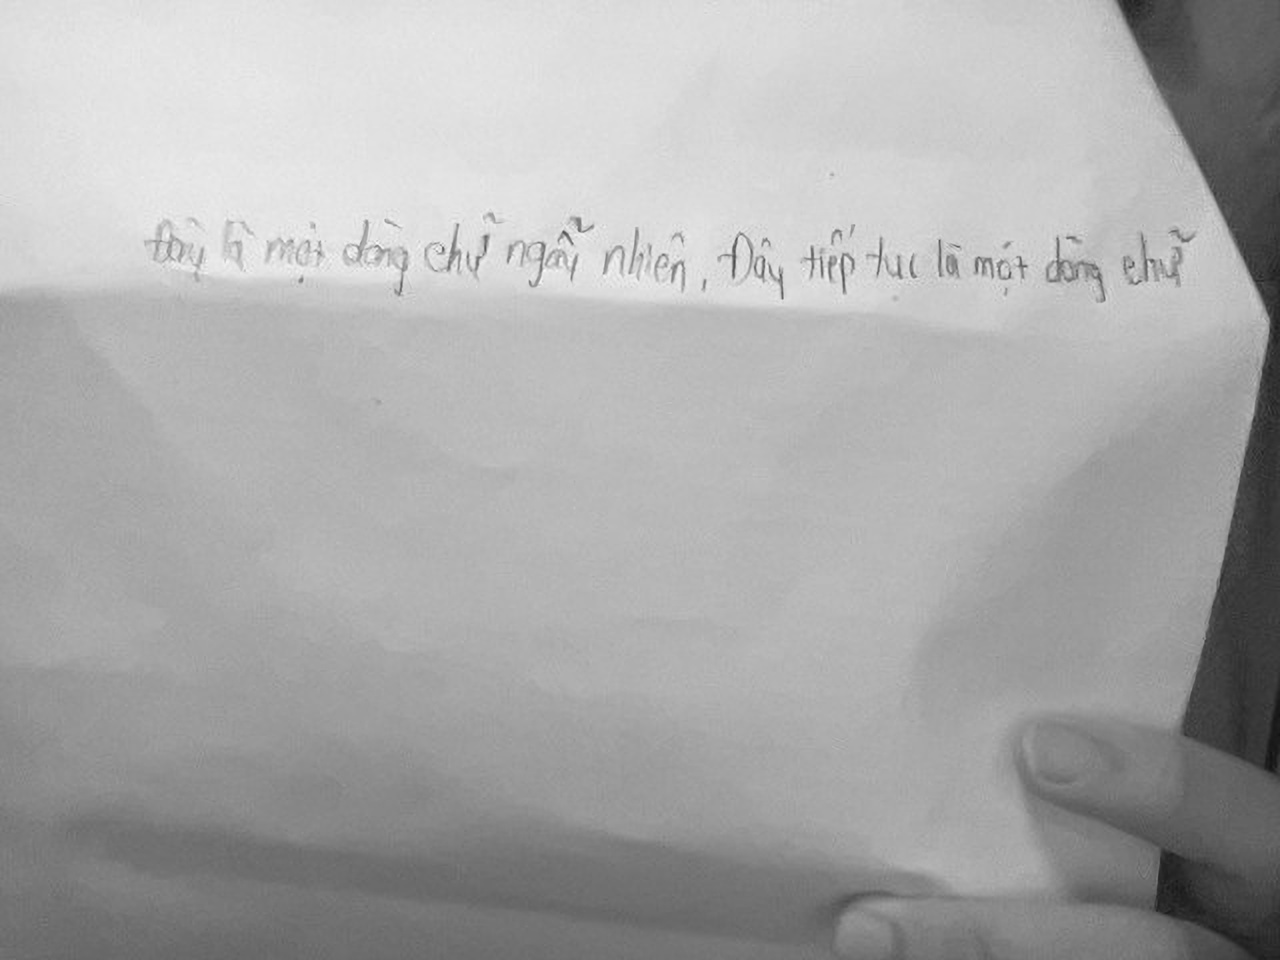 Đây là một dòng chữ ngẫu nhiên, Đây tiếp tục là một dòng chữ